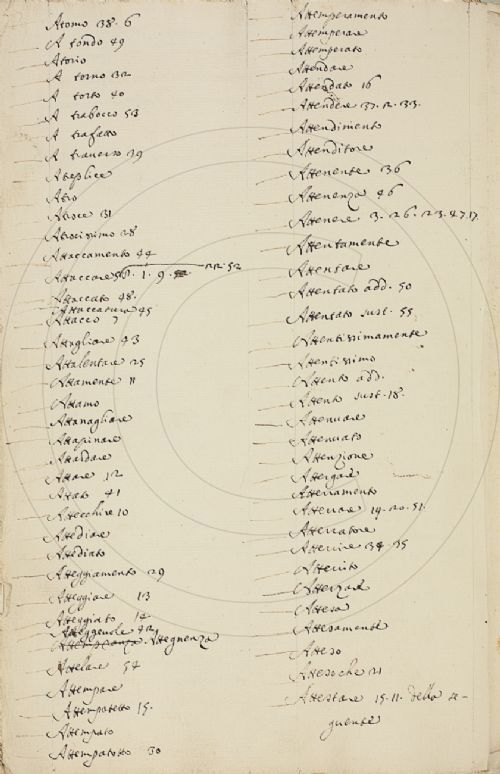 Atomo 38. 6
A tondo 49
Atorio
A torno 32
A torto 40
A trabocco 53
A trafatto
A traverso 39
Atriplice
Atro
Atroce 31
Atrocissimo 28
Attaccamento 44
Attaccare 1. 9. 22. 52
Attaccato 48.
Attaccatura 45
Attacco 7
Attagliare 43
Attalentare 25
Attamente 11
Attamo
Attanagliare
Attapinare
Attardare
Attare 12
Attato 41
Attecchire 10
Attediare
Attediato
Atteggiamento 29
Atteggiare 13
Atteggiato 14
Atteggevole 42
Attegnenza
Attelare 54
Attempare
Attempatetto 15.
Attempato
Attempatotto 30
Attemperamento
Attemperare
Attemperato
Attendare
Attendato 16
Attendere 37. 2. 33.
Attendimento
Attenditore
Attenente 36
Attenenza 46
Attenere 3. 26. 23. 47. 17.
Attentamente
Attentare
Attentato add. 50
Attentato sust. 55
Attentissimamente
Attentissimo
Attento add.
Attento sust. 18.
Attenuare
Attenuato
Attenzione
Attergare
Atterramento
Atterrare 19. 20. 51.
Atterratore
Atterrire 34. 35
Atterrito
Atterzare
Attesa
Attesamente
Atteso
Attesoche 21
Attestare 15. 11. della se-
guente